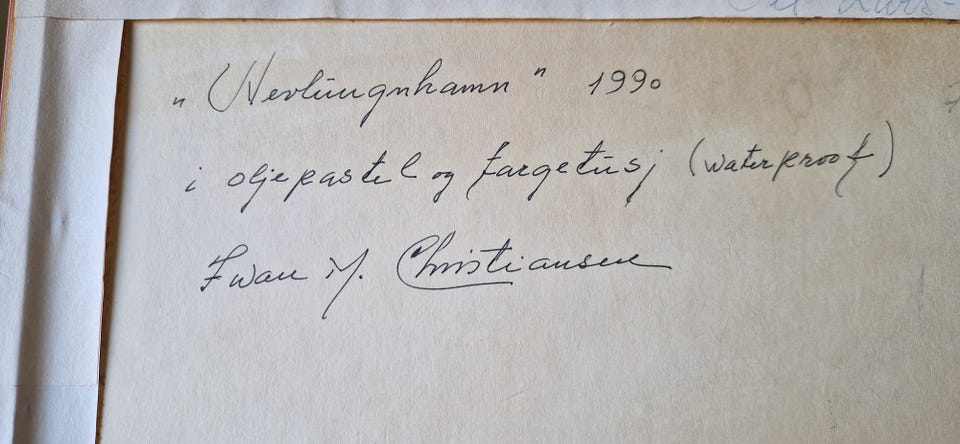 "Nevlungnhamn" 1990
i oljepastel og fargetusj (waterproof)
Iwan M. Christiansen